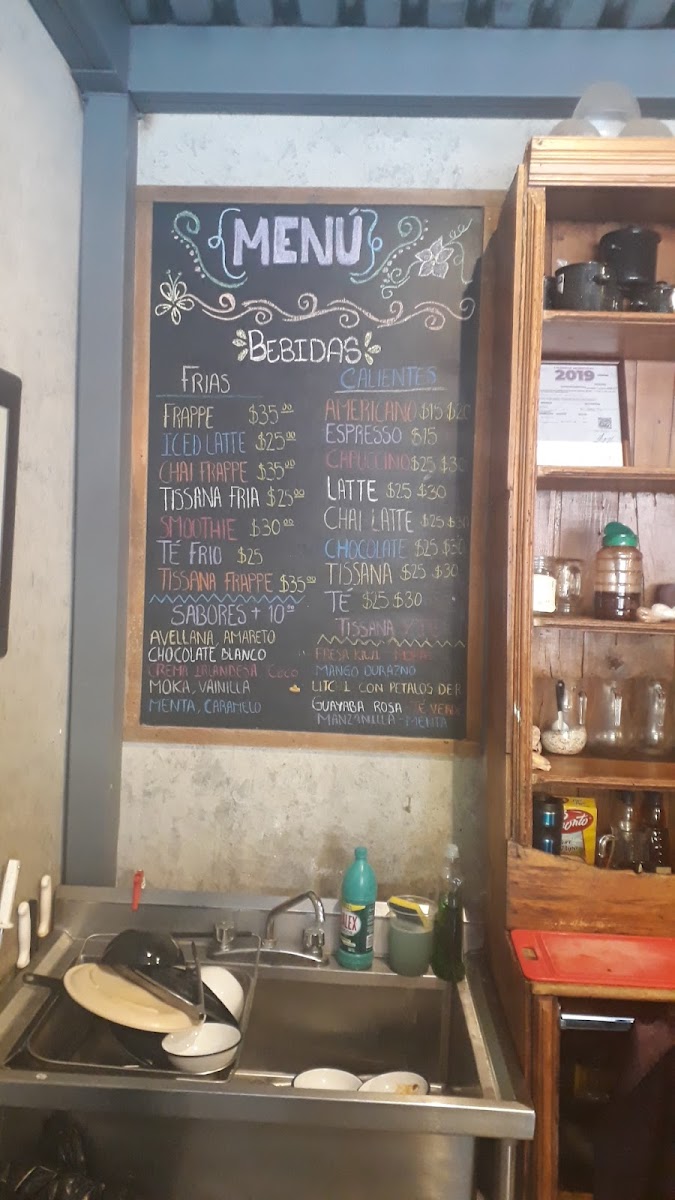 MENÚ
BEBIDAS
FRIAS
FRAPPE $35.00
ICED LATTE $25.00
CHAI FRAPPE $35.00
TISSANA FRIA $25.00
SMOOTHIE $30.00
TÉ FRIO $25
TISSANA FRAPPE $35.00
SABORES + 10.00
AVELLANA, AMARETO
CHOCOLATE BLANCO
CREMA IRLANDESA COCO
MOKA, VAINILLA
MENTA, CARAMELO
CALIENTES
AMERICANO $15 $20
ESPRESSO $15
CAPUCCINO $25 $30
LATTE $25 $30
CHAI LATTE $25 $30
CHOCOLATE $25 $30
TISSANA $25 $30
TÉ $25 $30
TISSANA
FRESA KIWI
MANGO DURAZNO
LITCHI CON PETALOS DE R
GUAYABA ROSA TÉ VERDE
MANZANILLA - MENTA
2019